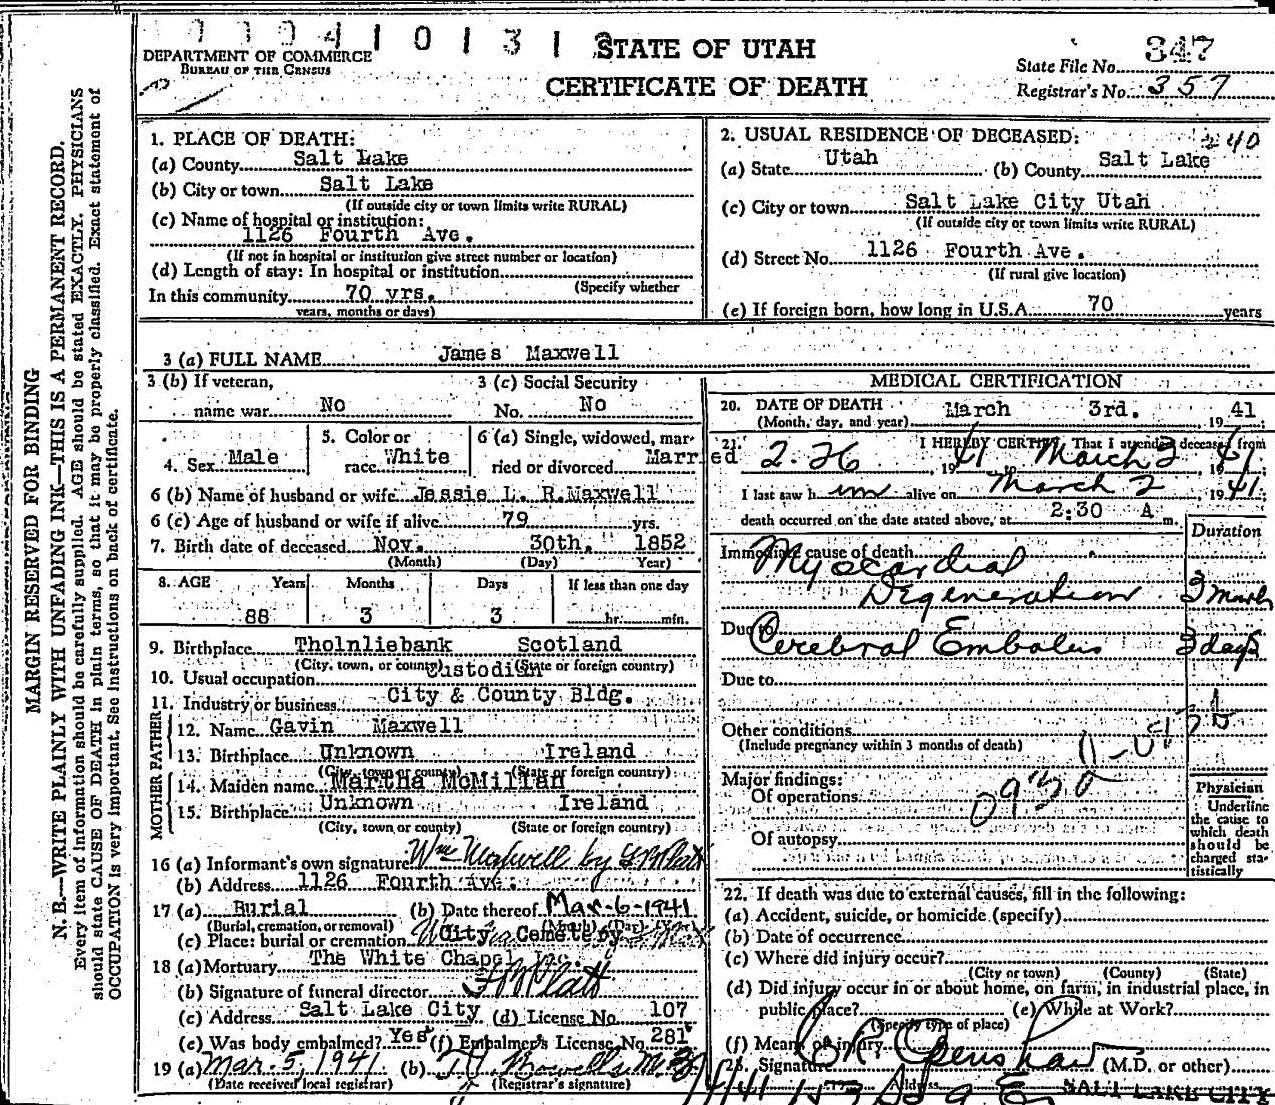 MARGIN RESERVED FOR BINDING
N. B.—WRITE PLAINLY WITH UNFADING INK—THIS IS A PERMANENT RECORD.
Every item of information should be carefully supplied. AGE should be stated EXACTLY. PHYSICIANS
should state CAUSE OF DEATH in plain terms, so that it may be properly classified. Exact statement of
OCCUPATION is very important. See instructions on back of certificate.
DEPARTMENT OF COMMERCE
BUREAU OF THE CENSUS
STATE OF UTAH
CERTIFICATE OF DEATH
State File No. 347
Registrar's No. 357
1. PLACE OF DEATH:
(a) County Salt Lake
(b) City or town Salt Lake
(If outside city or town limits write RURAL)
(c) Name of hospital or institution:
1126 Fourth Ave.
(If not in hospital or institution give street number or location)
(d) Length of stay: In hospital or institution
(Specify whether
In this community 70 yrs.
years, months or days)
2. USUAL RESIDENCE OF DECEASED:
(a) State Utah (b) County Salt Lake
(c) City or town Salt Lake City Utah
(If outside city or town limits write RURAL)
(d) Street No. 1126 Fourth Ave.
(If rural give location)
(e) If foreign born, how long in U.S.A. 70 years
3 (a) FULL NAME James Maxwell
3 (b) If veteran,
name war No
3 (c) Social Security
No. No
4. Sex Male
5. Color or
race White
6 (a) Single, widowed, mar-
ried or divorced Married
6 (b) Name of husband or wife Jessie L. R. Maxwell
6 (c) Age of husband or wife if alive 79 yrs.
7. Birth date of deceased Nov. 30th. 1852
(Month) (Day) (Year)
8. AGE Years Months Days If less than one day
88 3 3 hr. min.
9. Birthplace Tholnliebank Scotland
(City, town, or county) (State or foreign country)
10. Usual occupation Custodian
11. Industry or business City & County Bldg.
FATHER
12. Name Gavin Maxwell
13. Birthplace Unknown Ireland
(City, town or county) (State or foreign country)
MOTHER
14. Maiden name Martha McMillan
15. Birthplace Unknown Ireland
(City, town, or county) (State or foreign country)
16 (a) Informant's own signature Wm Maxwell by
(b) Address 1126 Fourth Ave.
17 (a) Burial (b) Date thereof Mar-6-1941
(Burial, cremation, or removal) (Month) (Day) (Year)
(c) Place: burial or cremation City Cemetery
18 (a) Mortuary The White Chapel Inc.
(b) Signature of funeral director
(c) Address Salt Lake City (d) License No. 107
(e) Was body embalmed? Yes (f) Embalmer's License No. 281
19 (a) Mar. 5, 1941 (b)
(Date received local registrar) (Registrar's signature)
MEDICAL CERTIFICATION
20. DATE OF DEATH March 3rd. 1941
(Month, day, and year)
21. I HEREBY CERTIFY, That I attended deceased from
2-26, 1941 to March 2 1941
I last saw him alive on March 2 1941;
death occurred on the date stated above, at 2:30 A m.
Duration
Immediate cause of death
Myocardial
Degeneration
Due to
Cerebral Embolus 3 days
Due to
Other conditions
(Include pregnancy within 3 months of death)
Major findings:
Of operations
Of autopsy
Physician
Underline
the cause to
which death
should be
charged sta-
tistically
22. If death was due to external causes, fill in the following:
(a) Accident, suicide, or homicide (specify)
(b) Date of occurrence
(c) Where did injury occur?
(City or town) (County) (State)
(d) Did injury occur in or about home, on farm, in industrial place, in
public place? (e) While at Work?
(Specify type of place)
(f) Means of injury
23. Signature (M.D. or other)
Address SALT LAKE CITY